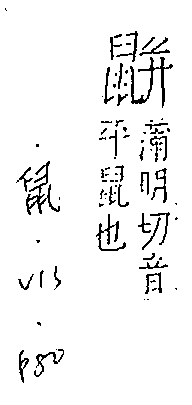 䶄
蒲明切音
平鼠也
·鼠·V13·P80